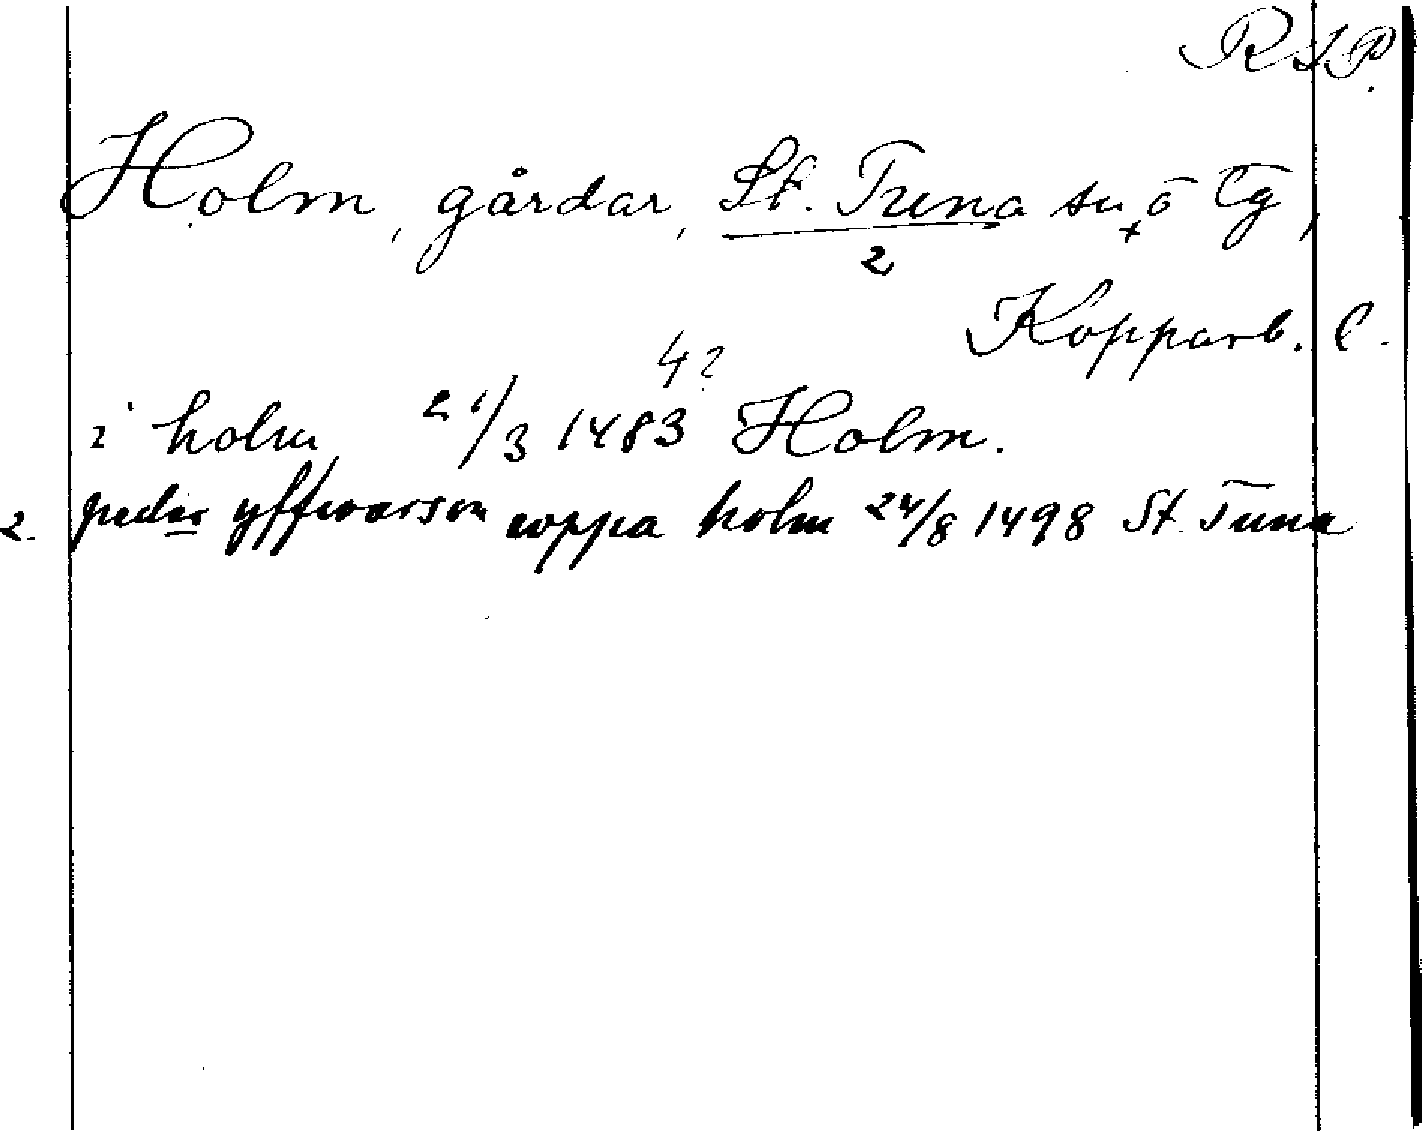 R A P.
Holm, gårdar, St. Tuna sn o tg,
2 +
Kopparb. l.
4?
i holm 21/3 1483 Holm.
2. peder yffwarson wppa holm 24/8 1498 St. Tuna